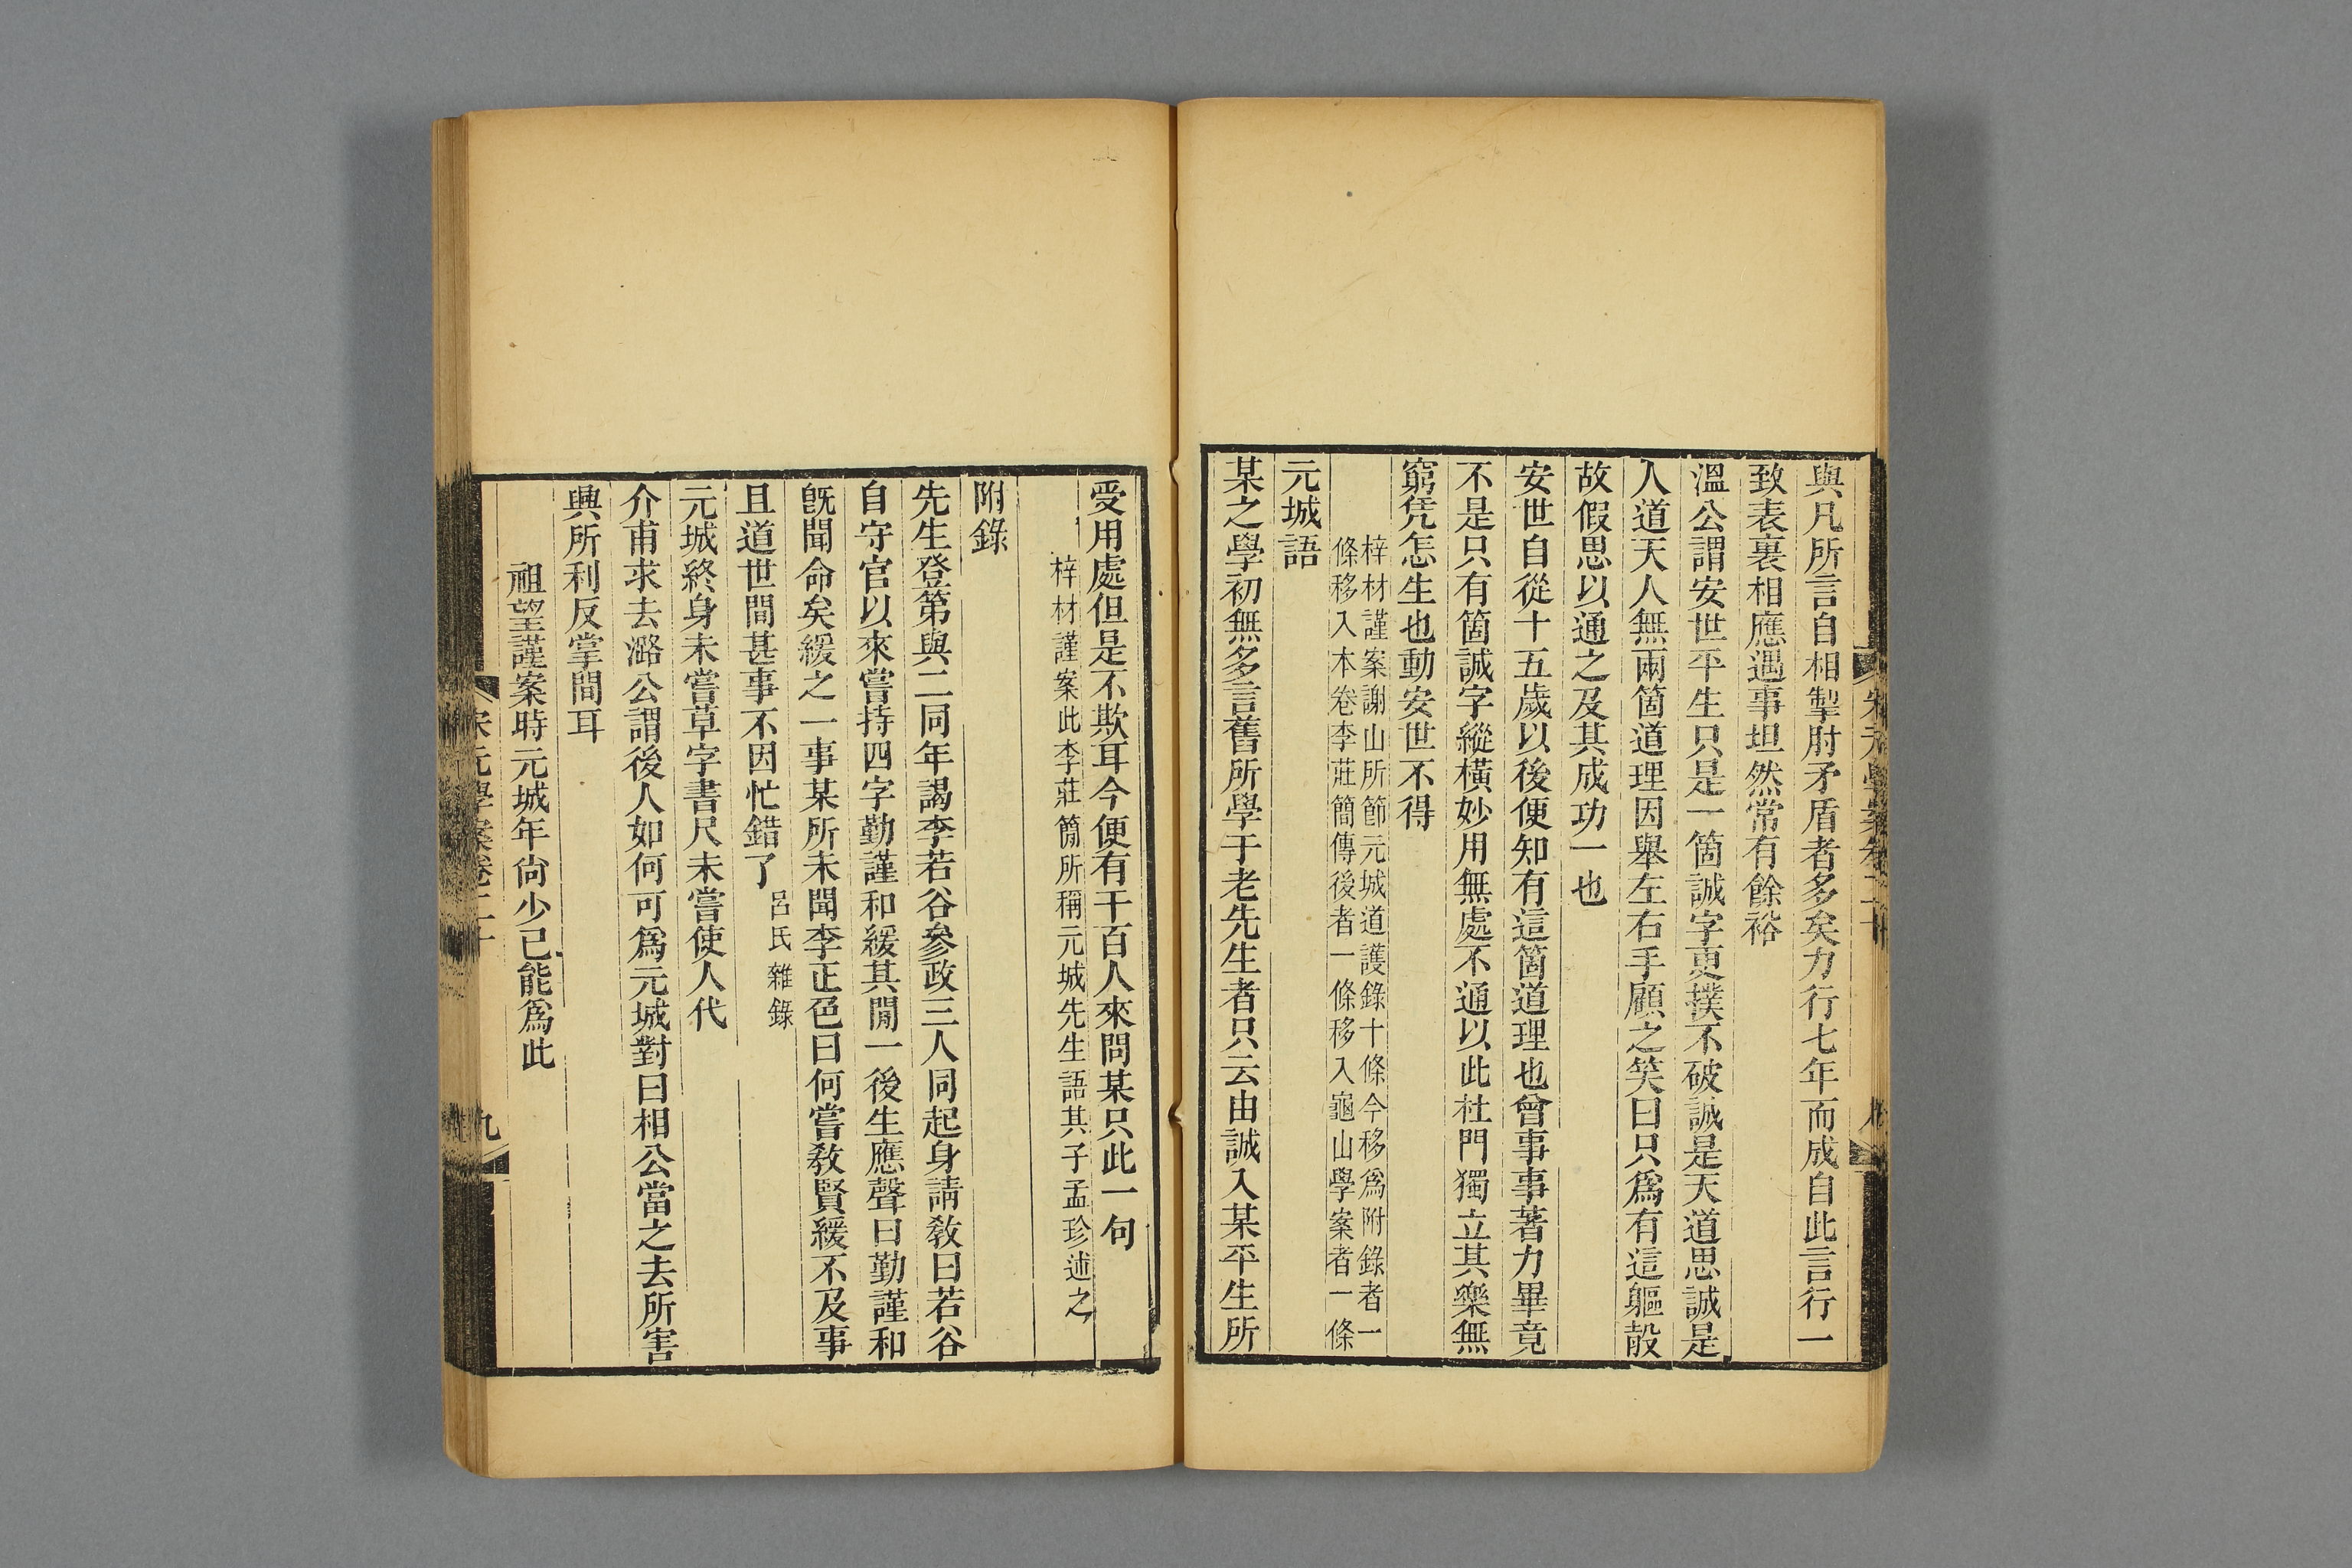 與凡所言自相掣肘矛盾者多矣力行七年而成自此言行一
致表裏相應遇事坦然常有餘裕
溫公謂安世平生只是一箇誠字更撲不破誠是天道思誠是
人道天人無兩箇道理因舉左右手顧之笑曰只爲有這軀殼
故假思以通之及其成功一也
安世自從十五歲以後便知有這箇道理也曾事事著力畢竟
不是只有箇誠字縱橫妙用無處不通以此杜門獨立其樂無
窮凭怎生也動安世不得
梓材謹案謝山所節元城道護錄十條今移爲附錄者一
條移入本卷李莊簡傳後者一條移入龜山學案者一條
元城語
某之學初無多言舊所學于老先生者只云由誠入某平生所
宋元學案卷二十
受用處但是不欺耳今便有千百人來問某只此一句
梓材謹案此李莊簡所稱元城先生語其子孟珍述之
附錄
先生登第與二同年謁李若谷參政三人同起身請敎曰若谷
自守官以來嘗持四字勤謹和緩其閒一後生應聲曰勤謹和
旣聞命矣緩之一事某所未聞李正色曰何嘗敎賢緩不及事
且道世間甚事不因忙錯了呂氏雜錄
元城終身未嘗草字書尺未嘗使人代
介甫求去潞公謂後人如何可爲元城對曰相公當之去所害
興所利反掌間耳
祖望謹案時元城年尙少已能爲此
宋元學案卷二十
九